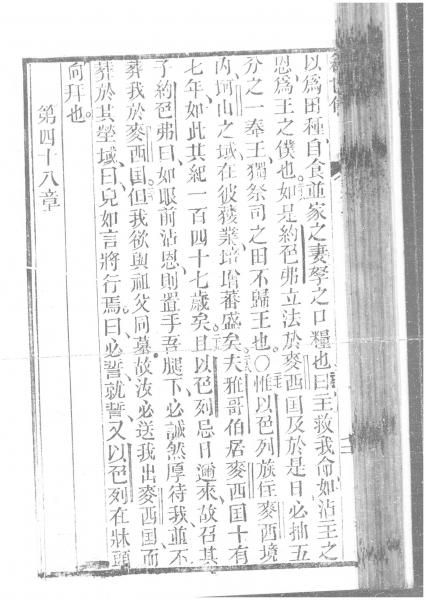 以爲田種自食並家之妻孥之口糧也曰王救我命如沾王之
恩爲王之僕也如是約色弗立法於麥西国及於是日必抽五
分之一奉王獨祭司之田不歸王也〇惟以色列族住麥西境
内坷山之域在彼獲業培增蕃盛矣夫雅哥伯居麥西国十有
七年如此其紀一百四十七歲矣且以色列忌日邇來故召其
子約色弗曰如眼前沾恩則置手吾腿下必誠然厚待我並不
葬我於麥西国但我欲與祖父同墓故汝必送我出麥西国而
葬於其塋域曰兒如言將行焉曰必誓就誓又以色列在牀頭
向拜也。
第四十八章